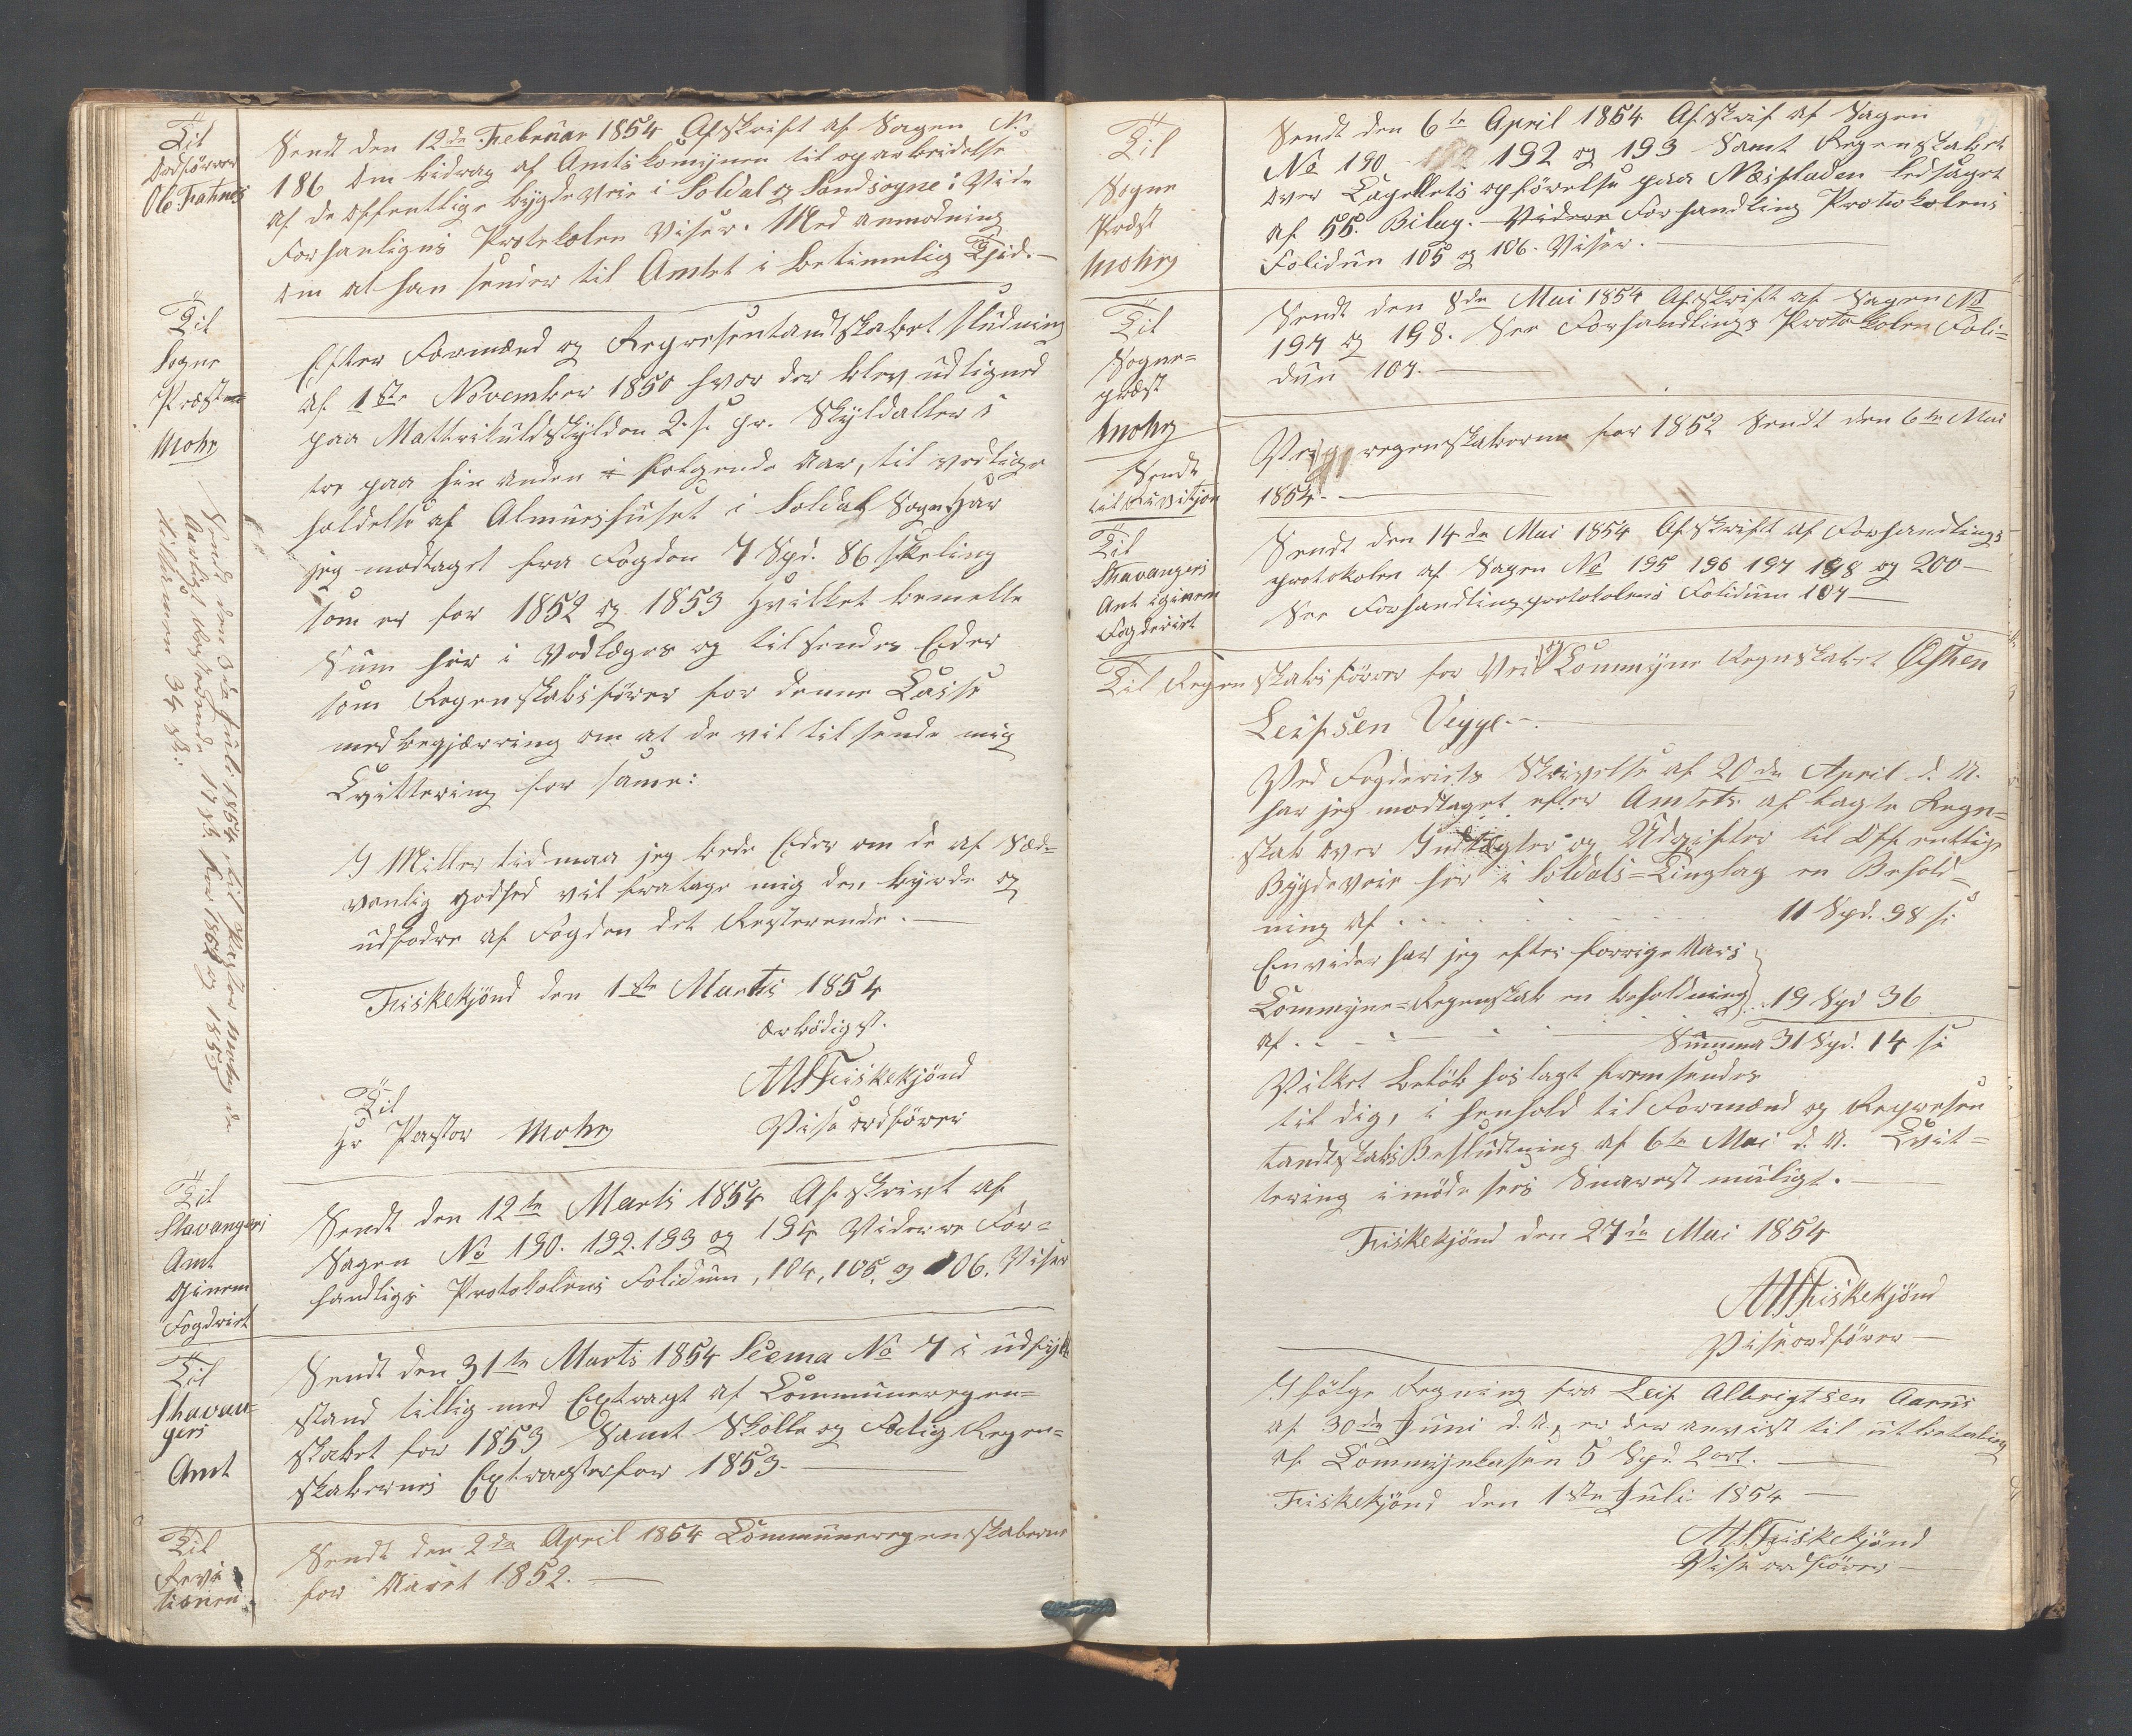 Til
Ordförrer
Ole Fatnes
Sendt den 12de Februar 1854 Afskrift af Sagen No
186 Om bidrag af Amtskomynen til oparbeidelse
af de offentlige bygdeveie i Soldal og Sandsogne: Vide
Forhanligns Protokolen Viser. Med anmodning
om at han sender til Amtet i betimelig Tjid.—
Til
Sogne
Præsten
Mohr
Efter Formænd og Representandtskabet sludning
af 1ste November 1850 hvor der blev udligned
paa Mattrikulskylden 2 s. pr. Skyldaller i
tre paa hin anden følgende Aar, til vedlige
holdelse af Almueshuset i Soldal Sogn Har
jeg modtaget fra Fogden 7 Spd. 86 skeling
som er for 1852 og 1853 Hvilket bemelte
Sum her i Vedlægges og tilsendes Eder
som Regenskabsförer for denne Casse
med begjærring om at de vil tilsende mig
Qvittering for same:
I Midlertid maa jeg bede Eder om de af Sæd-
vanlig godhed vil fratage mig den byrde og
udfodre af Fogden det Resterende.—
Fiskekjönd den 1ste Martis 1854
ærbödigst.
AMFiskekjönd
Viseordförer
Til
Hr Pastor Mohr
Sendt den 3de Juli 1854 til Pastor Mohr de
Aarligt Resterende 17 s. for 1852 og 1853
tilsammen 34 s:
Til
Stavangers
Amt
Ginem
Fogdriet
Sendt den 12te Marts 1854 Afskrivt af
Sagen No 190. 192. 193 og 194 Viderre For-
handligs Protokolens Folidum, 104, 105, og 106. Viser
Til
Stavan-
gers
Amt
Sendt den 31te Marts 1854 Scema No 7 i udfyldt
stand tillig med Extragt af Communeregen-
skabet for 1853 Samt Skolle og Fattig Regen-
skabernes Extragter for 1853.—
Til
Revi
tionen
Sendt den 2de April 1854 Communeregenskaberne
for Aaret 1852.—
Til
Sogne
Præst
Mohr
Sendt den 6te April 1854 Afskrift af Sagen
No 190 192 og 193 Samt Regenskabet
over Capellets opförelse paa Næsfladen ledsaget
af 55. Bilag. Videre Forhandling Protokolens
Folidum 105 og 106. Viser.—
Til
Sogne=
præst
Mohr
Sendt den 8de Mai 1854 Afskrift af Sagen No
197 og 198. See Forhandlings Protokolen Foli=
dum 107.—
Sendt
til Revisjon
Veigregenskaberne for 1852 Sendt den 6te Mai
1854.—
Til
Stavangers
Amt igiem
Fogderiet
Sendt den 14de Mai 1854 Afskrift af Forhandlings
protokolen af Sagen No 195 196 197 198 og 200—
See Forhandlingprotokolens Folidum 107—
Til Regenskabsförrer for Vei og Commyne Regnskabet Osten
Leifsen Vegge.—
Ved Fogderiets Skrivelse af 20de April d. A.
har jeg modtaget efter Amtets aflagte Regn=
skab over Indtægter og Udgifter til Offentlige
Bygdeveie her i Soldals=Tinglag en Behold=
ning af . . . . . . . 11 Spd. 98 s:
Envider har jeg efter forrige Aars
Commyne=Regenskab en beholdning
af . . . . . 19 Spd 36
Summa 31 Spd. 14 s:
Vilket Belöb hoslagt fremsendes
til dig, i henhold til Formænd og Represen
tandtskabsBesludtning af 6te Mai d. A. Qvit=
tering imödesees Snarest muligt.—
Fiskekjönd den 27de Mai 1854
AMFiskekjönd
Viseordförer—
I fölge Regning fra Leif Albrigtsen Aarus
af 30de Juni d. A, er der anvist til utbetaling
af Commynekasen 5 Spd. 2 ort.—
Fiskekjönd den 1ste Juli 1854—
AMFiskekjönd
Viseordförer—